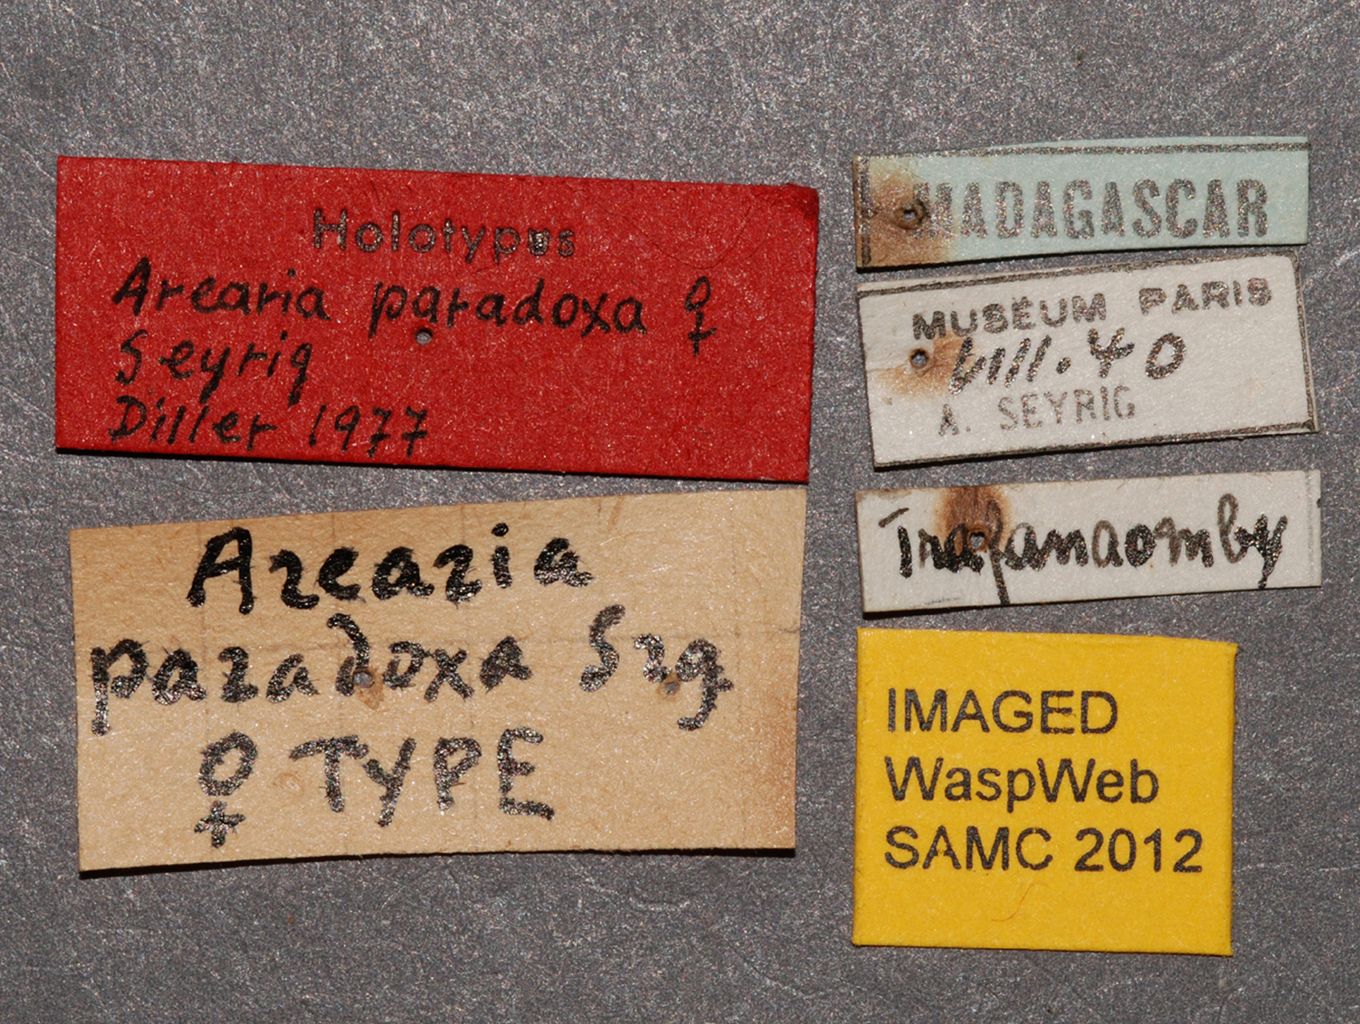 Holotypus
Arearia paradoxa ♀
Seyrig
Diller 1977
Arearia
paradoxa Srg
♀ TYPE
MADAGASCAR
MUSEUM PARIS
VIII.40
A. SEYRIG
Trafanaomby
IMAGED
WaspWeb
SAMC 2012